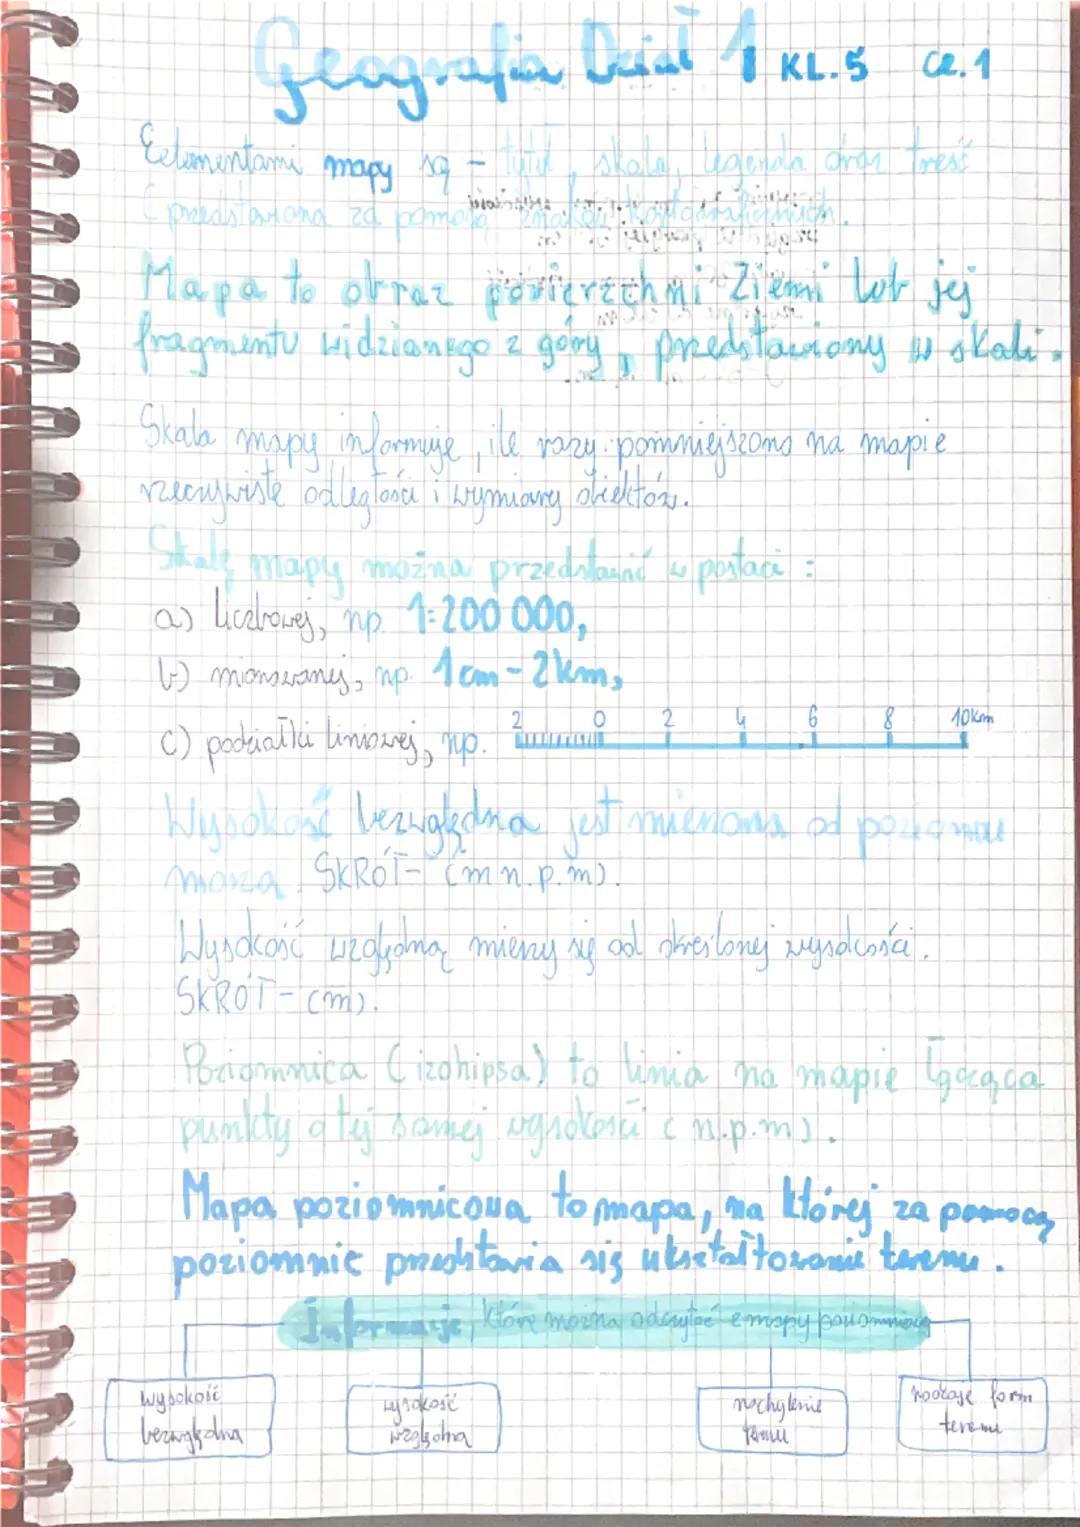 Geografia Dział 1 KL.5 CZ.1
Eelementami mapy są – tytuł, skala, legenda oraz treść
(przedstawiona za pomocą znaków kartograficznych.
Mapa to obraz powierzchni Ziemi lub jej
fragmentu widzianego z góry, przedstawiony w skali.
Skala mapy informuje, ile razy pomniejszono na mapie
rzeczywiste odległości i wymiary obiektów.
Skalę mapy można przedstawić w postaci :
a) liczbowej, np. 1:200 000,
b) mianowanej, np. 1cm – 2km,
2 0 2 4 6 8 10km
c) podziałki liniowej, np.
Wysokość bezwzględna jest mierzona od poziomu
morza. SKRÓT- (m n.p.m).
Wysokość względną mierzy się od określonej wysokości.
SKRÓT- (m).
Poziomnica (izohipsa) to linia na mapie łącząca
punkty o tej samej wysokości ( n.p.m).
Mapa poziomnicowa to mapa, na której za pomocą
poziomnic przedstawia się ukształtowanie terenu.
Informacje, które można odczytać z mapy poziomnicowej
wysokość bezwzględna
wysokość względna
nachylenie terenu
rodzaje form terenu